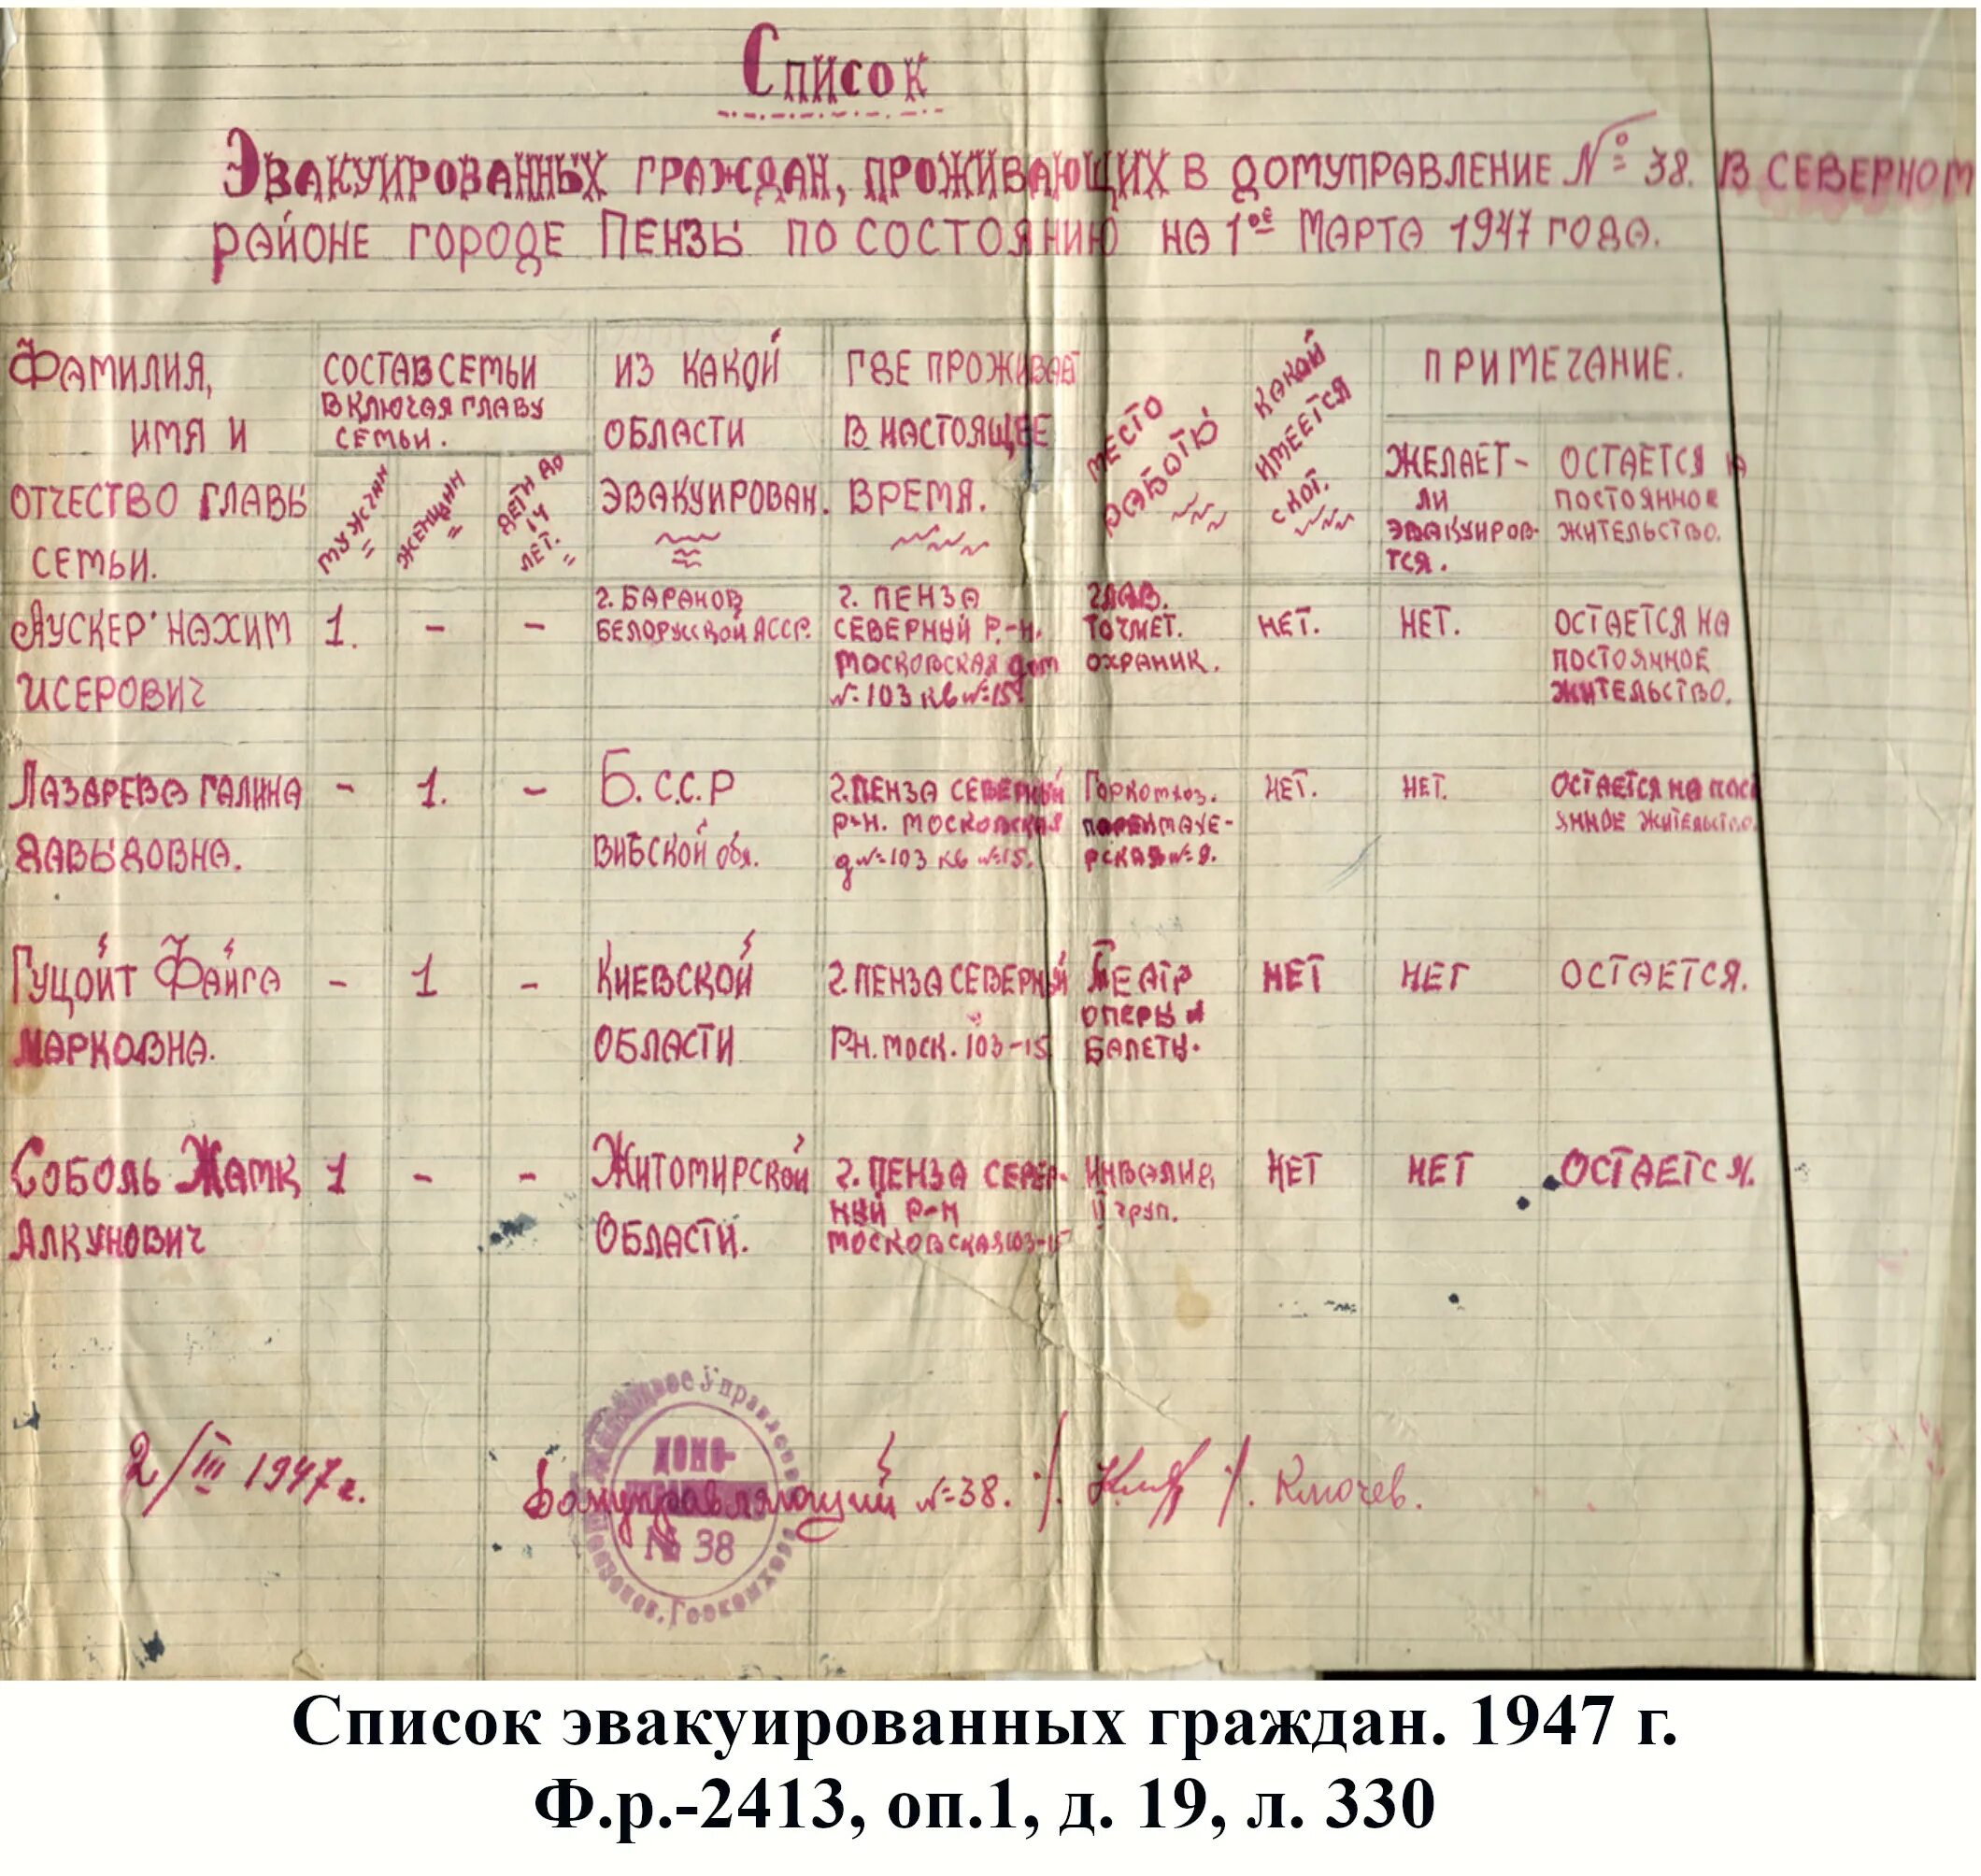 Список
Эвакуированных граждан, проживающих в домуправление № 38. в северном
районе городе Пензы по состоянию на 1ое марта 1947 года.
Фамилия,
имя и
отчество главы
семьи.
состав семьи
включая главу
семьи.
мужчин
женщин
дети до
14
лет.
из какой
области
эвакуирован.
где проживает
в настоящее
время.
место
работы
какой
имеется
скот.
примечание.
желает-
ли
эвакуиров-
тся.
остается на
постоянное
жительство.
Аускер Нахим
Исерович
1.
-
-
г. Баранов
Белорусской АССР.
г. Пенза
северный р.-н.
московская дом
№ 103 кв № 15.
глав.
точмет.
охраник.
нет.
нет.
остается на
постоянное
жительство.
Лазарева Галина
Давыдовна.
-
1.
-
Б.С.С.Р
Вибской обл.
г. Пенза северный
р-н. московская
д № 103 кв № 15.
Горкомхоз.
парикмахе-
рская № 9.
нет.
нет.
остается на пост
янное жительство.
Гуцойт Файга
Марковна.
-
1
-
Киевской
области
г. Пенза северный
рн. моск. 103-15
Театр
оперы и
балеты.
нет
нет
остается.
Соболь
Алкунович
1
-
-
Житомирской
области.
г. Пенза север-
ный р-н
московская 103-15
Инвалид
II груп.
нет
нет
остается.
2/III 1947 г.
Домуправляющий № 38. /. /. Ключев.
Жилищное Управление
ДОМО-
№ 38
Горкомхоза
Список эвакуированных граждан. 1947 г.
Ф.р.-2413, оп.1, д. 19, л. 330